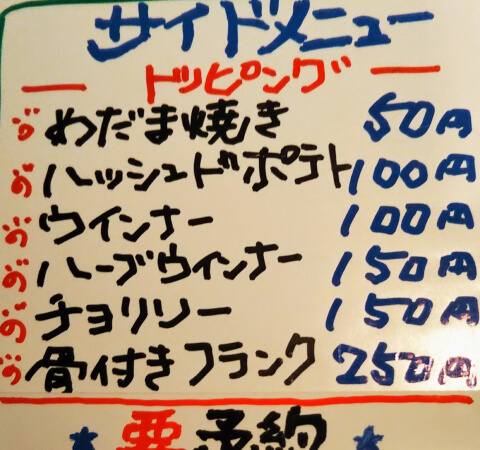 サイドメニュー
トッピング
めだま焼き 50円
ハッシュドポテト 100円
ウインナー 100円
ハーブウインナー 150円
チョリソー 150円
骨付きフランク 250円
★要予約★